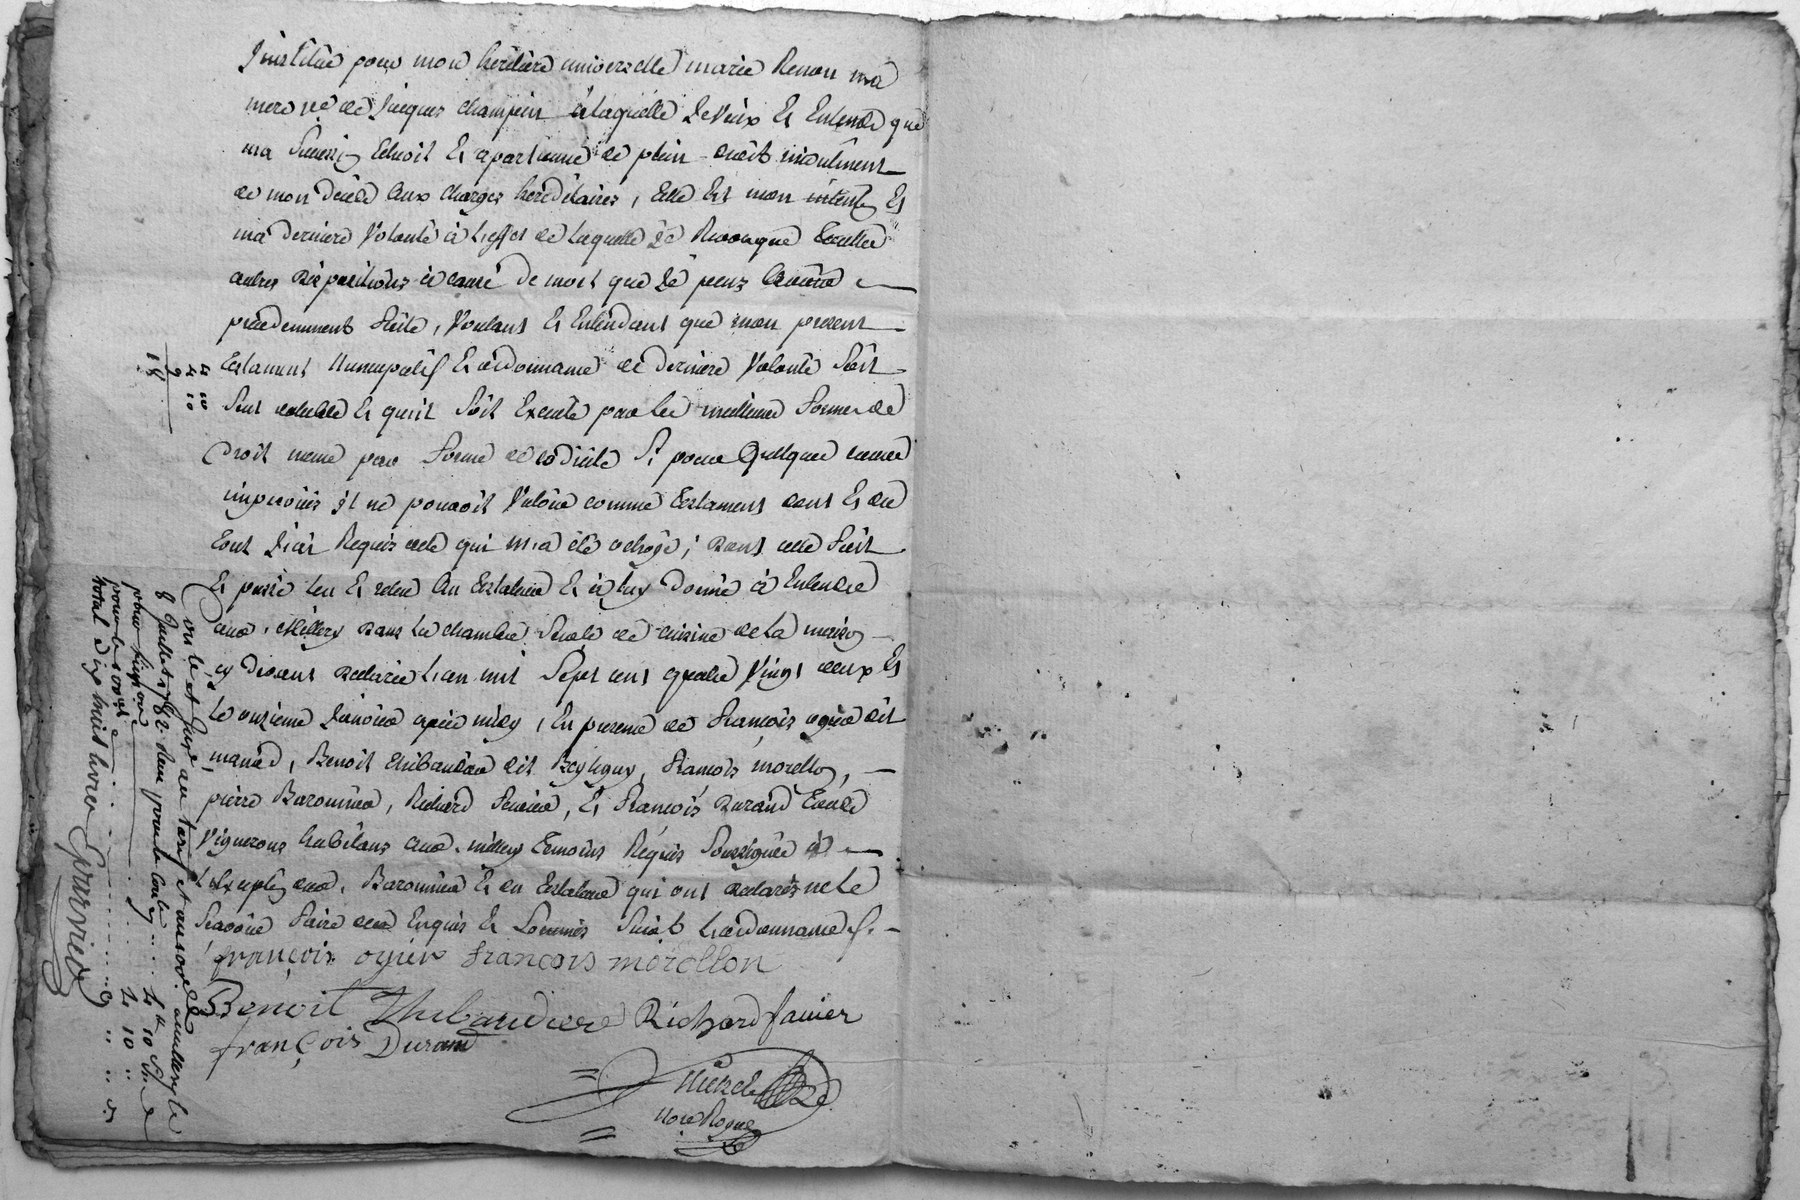 J'institue pour mon héritiere universelle marie Renon ma
mere ve de Jacques champin à laquelle Je veux Et Entend que
ma Succession Echoit Et apartienne de plein droit incontinent
de mon décès Aux charges héréditaires, telle Est mon intention Et
ma derniere Volonté à L'effet de laquelle Je Revoque toutes
autres dispositions à cause de mort que Je peux Avoir
precedemment faite, Voulant Et Entendant que mon present
testament Nuncupatif Et ordonnance de derniere Volonté Soit
Seul valable Et qu'il Soit Executé par les meilleures formes de
Droit meme par forme de codicile Si pour Quelques causes
imprevues il ne pouvoit Valoir comme testament dont Et du
tout J'ai Requis acte qui m'a été octroyé; dont acte Fait
Et passé leu Et releu Au testateur Et à luy donné à Entendre
aud. Millery dans la chambre Servant de cuisine de la maison
cy devant declarée L'an mil Sept cent quatre Vingt deux Et
le onzieme Janvier après midy, En presence de François ogier dit
manard, Benoit thibaudier dit, François morellon,
pierre Baronnier, Richard favier, Et François Durand tous
Vignerons habitans aud. millery temoins Requis Soussignés à
L'Exception dud. Baronnier Et du testateur qui ont declarés ne le
Scavoir faire de ce Enquis Et Sommés Suivt L'ordonnance.
françois ogier francois morellon
Benoit Thibaudiere Richard favier
françois Durand
Nore Royal
4 10
4 10
9
18
controllé et Juré au tarif et au
8 Juillet 1782. Reçu pour le controlle 4# 10 s
4 10
9
total dix huit livres Eparvier